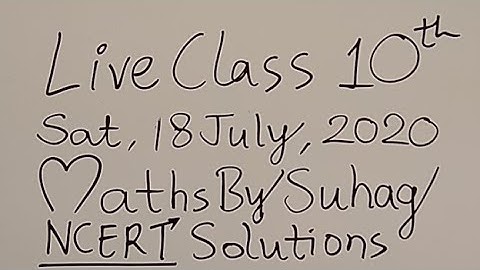 Live Class 10th
Sat, 18 July, 2020
Maths By Suhag
NCERT Solutions